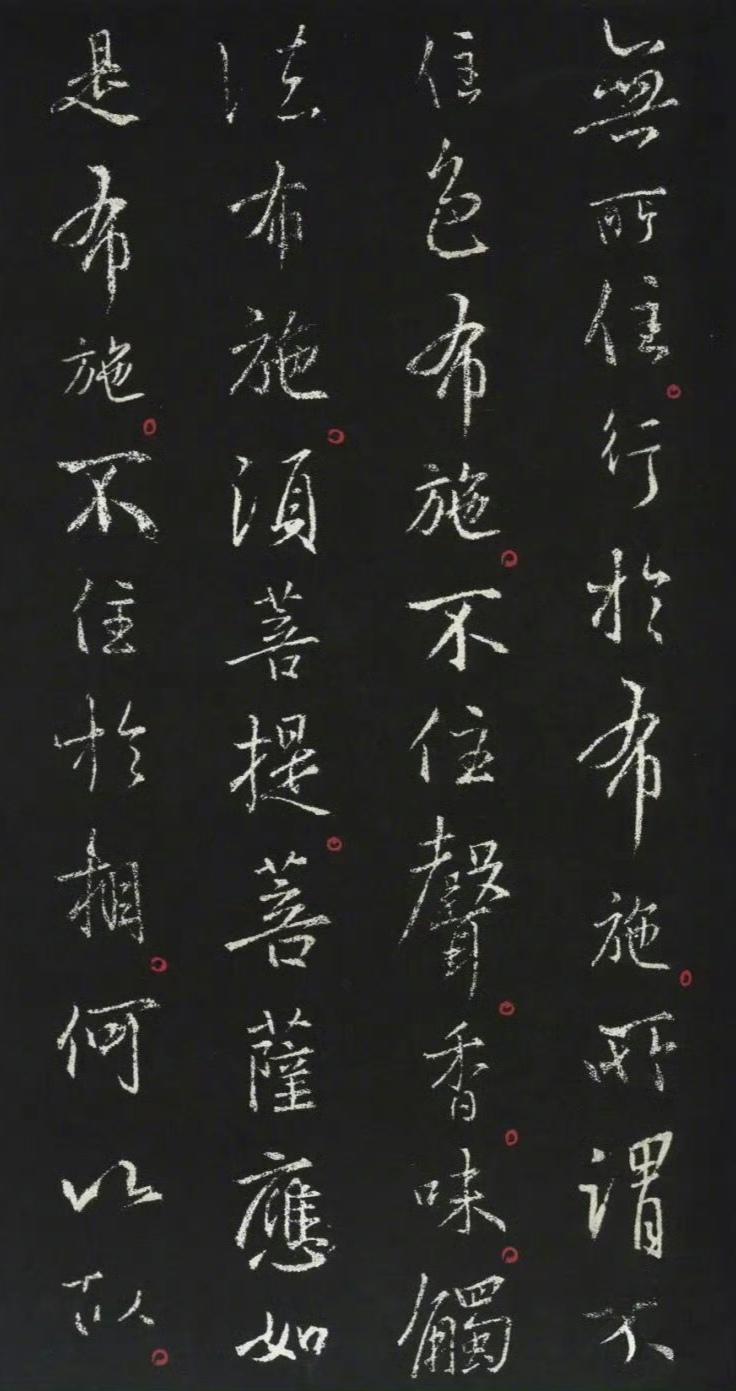 無所住。行於布施。所謂不
住色布施。不住聲。香。味。觸
法布施。須菩提。菩薩應如
是布施。不住於相。何以故。